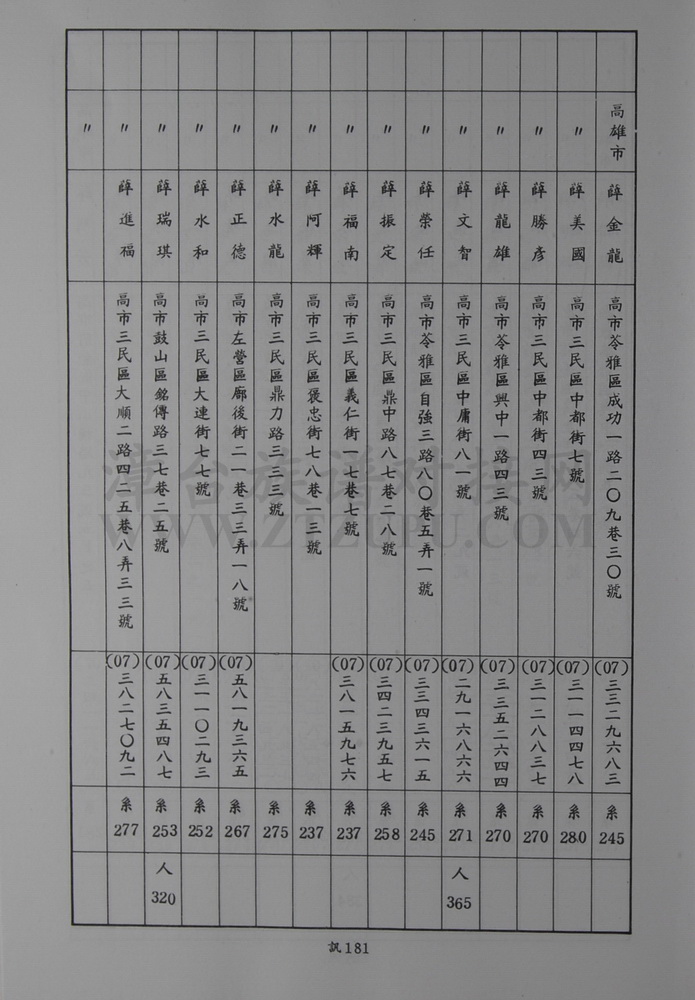 高雄市 薛金龍 高市苓雅區成功一路二〇九巷三〇號 (07)三三二九六八三 系245
〃 薛美國 高市三民區中都街七號 (07)三一一四四七八 系280
〃 薛勝彥 高市三民區中都街四三號 (07)三一二八八三七 系270
〃 薛龍雄 高市苓雅區興中一路四三號 (07)三三五二六四四 系270
〃 薛文智 高市三民區中庸街八一號 (07)二九一六八六六 系271 人365
〃 薛榮任 高市苓雅區自強三路八〇巷五弄一號 (07)三三四三六一五 系245
〃 薛振定 高市三民區鼎中路八七巷二八號 (07)三四二三九五七 系258
〃 薛福南 高市三民區義仁街一七巷七號 (07)三八一五九七六 系237
〃 薛阿輝 高市三民區褒忠街七八巷一三號 系237
〃 薛水龍 高市三民區鼎力路三三三號 系275
〃 薛正德 高市左營區廍後街二一巷三三弄一八號 (07)五八一九三六五 系267
〃 薛水和 高市三民區大連街七七號 (07)三一一〇二九三 系252
〃 薛瑞琪 高市鼓山區銘傳路三七巷二五號 (07)五八三五四八七 系253 人320
〃 薛進福 高市三民區大順二路四二五巷八弄三三號 (07)三八二七〇九二 系277
〃
訊181
漳台族谱对接网
WWW.ZTZUPU.COM